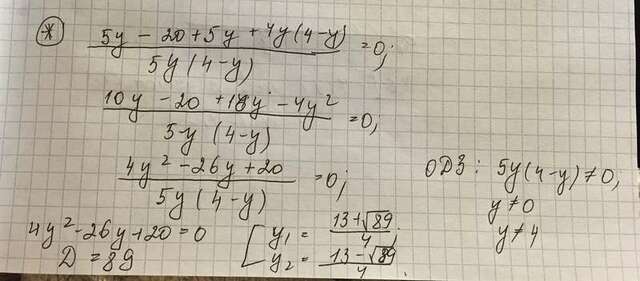 * (5y - 20 + 5y + 4y(4-y))/(5y(4-y)) = 0;
(10y - 20 + 16y - 4y²)/(5y(4-y)) = 0;
(4y² - 26y + 20)/(5y(4-y)) = 0;
ОДЗ: 5y(4-y) ≠ 0,
y ≠ 0
y ≠ 4
4y² - 26y + 20 = 0
D = 89
[ y₁ = (13 + √89)/4;
y₂ = (13 - √89)/4.